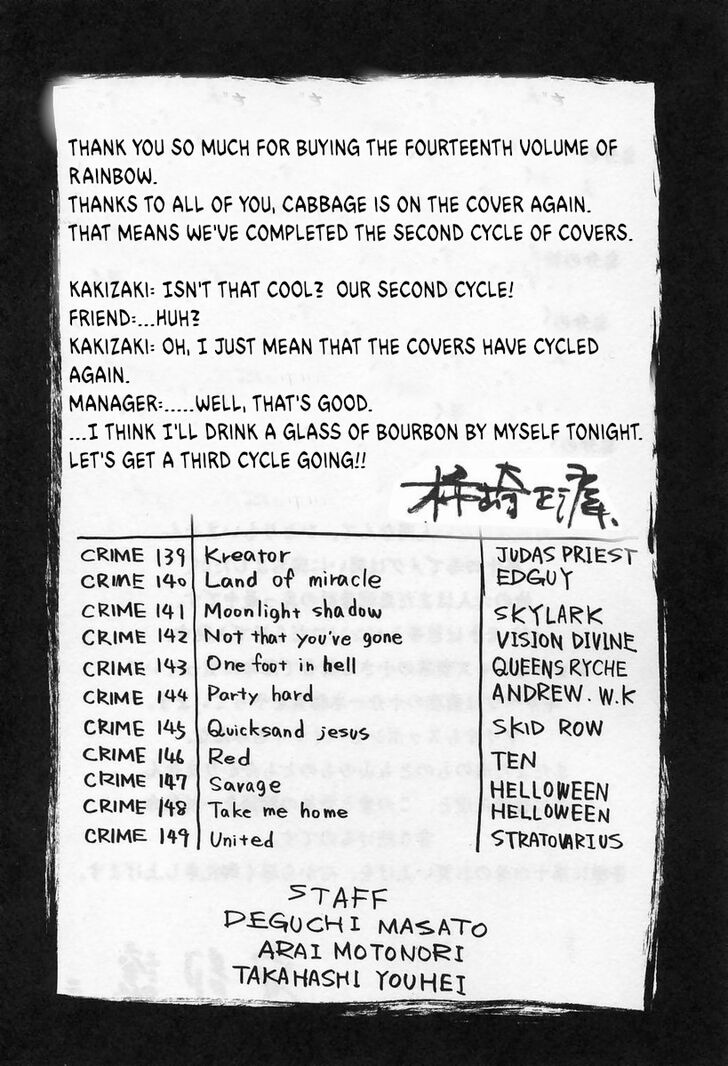 THANK YOU SO MUCH FOR BUYING THE FOURTEENTH VOLUME OF
RAINBOW.
THANKS TO ALL OF YOU, CABBAGE IS ON THE COVER AGAIN.
THAT MEANS WE'VE COMPLETED THE SECOND CYCLE OF COVERS.
KAKIZAKI: ISN'T THAT COOL? OUR SECOND CYCLE!
FRIEND:...HUH?
KAKIZAKI: OH, I JUST MEAN THAT THE COVERS HAVE CYCLED
AGAIN.
MANAGER:.....WELL, THAT'S GOOD.
...I THINK I'LL DRINK A GLASS OF BOURBON BY MYSELF TONIGHT.
LET'S GET A THIRD CYCLE GOING!!
CRIME 139 Kreator JUDAS PRIEST
CRIME 140 Land of miracle EDGUY
CRIME 141 Moonlight shadow SKYLARK
CRIME 142 Not that you've gone VISION DIVINE
CRIME 143 One foot in hell QUEENS RYCHE
CRIME 144 Party hard ANDREW. W.K
CRIME 145 Quicksand jesus SKID ROW
CRIME 146 Red TEN
CRIME 147 Savage HELLOWEEN
CRIME 148 Take me home HELLOWEEN
CRIME 149 United STRATOVARIUS
STAFF
DEGUCHI MASATO
ARAI MOTONORI
TAKAHASHI YOUHEI